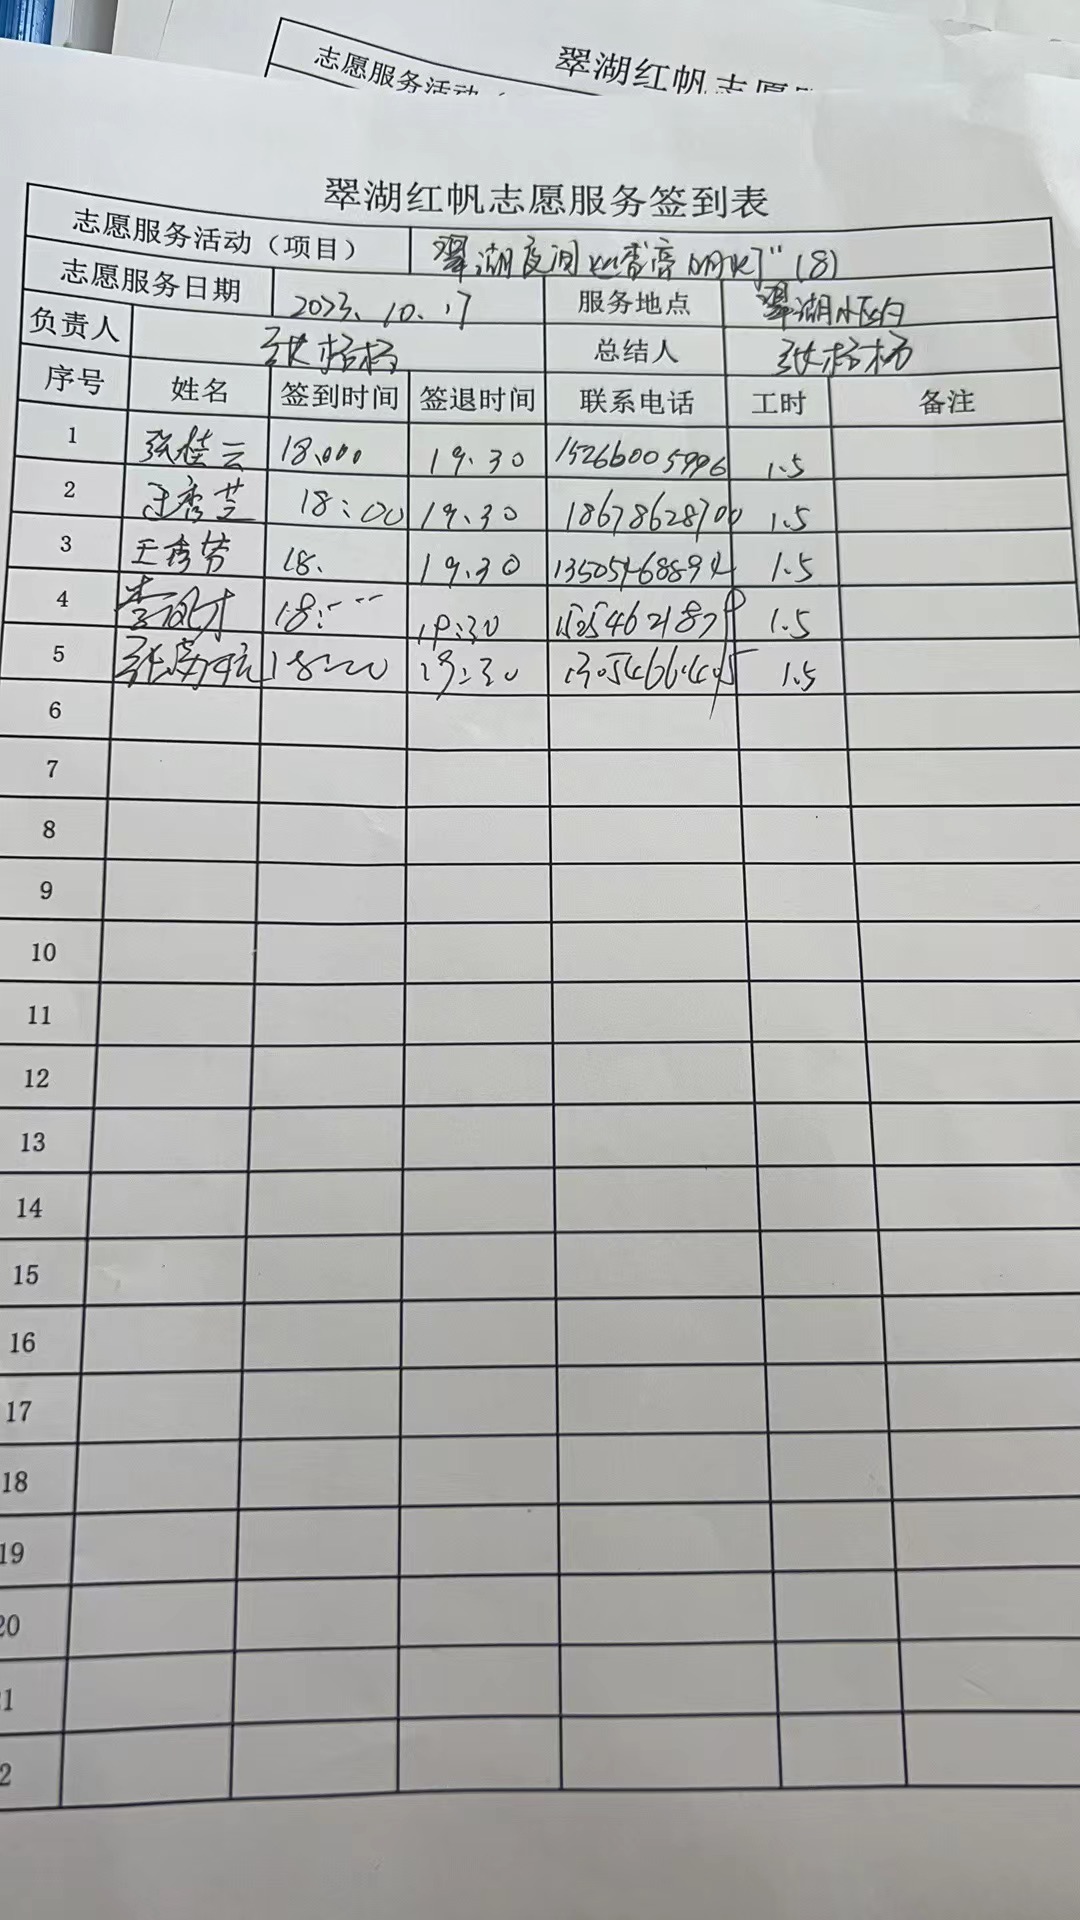 翠湖红帆志愿
志愿服务活动（
翠湖红帆志愿服务签到表
志愿服务活动（项目） 翠湖夜间 (8)
志愿服务日期 2023.10.17 服务地点 翠湖
负责人 张杨杨 总结人 张杨杨
序号 姓名 签到时间 签退时间 联系电话 工时 备注
1 张桂云 18.000 19.30 15266005996 1.5
2 王秀芝 18:00 19.30 18678628700 1.5
3 王秀芳 18. 19.30 13505468894 1.5
4 18: 19:30 1.5
5 张 18 19:30 1.5
6
7
8
9
10
11
12
13
14
15
16
17
18
19
20
1
2